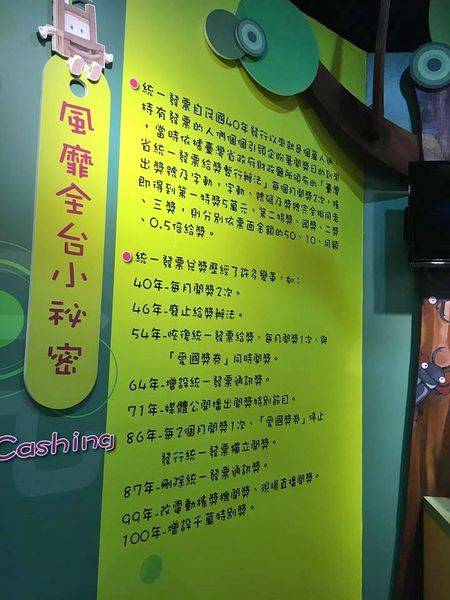 風靡全台小祕密
Cashing
統一發票自民國40年發行以來就是個萬人迷,
持有發票的人們個個引頸企盼著開獎日的到來
,當時依據臺灣省政府財政廳所頒布的「臺灣
省統一發票給獎暫行辦法」每個月開獎2次,搖
出獎號及字軌,字軌、號碼及獎號完全相同者
即得到第一特獎5萬元,第二特獎、頭獎、二獎
、三獎,則分別依票面金額的50、10、同額
、0.5倍給獎。
統一發票兌獎歷經了許多變革,如:
40年-每月開獎2次。
46年-廢止給獎辦法。
54年-恢復統一發票給獎、每月開獎1次、與
「愛國獎券」同時開獎。
64年-增設統一發票通訊獎。
71年-媒體公開播出開獎特別節目。
86年-每2個月開獎1次、「愛國獎券」停止
發行統一發票獨立開獎。
87年-刪除統一發票通訊獎。
99年-改電動搖獎機開獎、現場直播開獎。
100年-增設千萬特別獎。